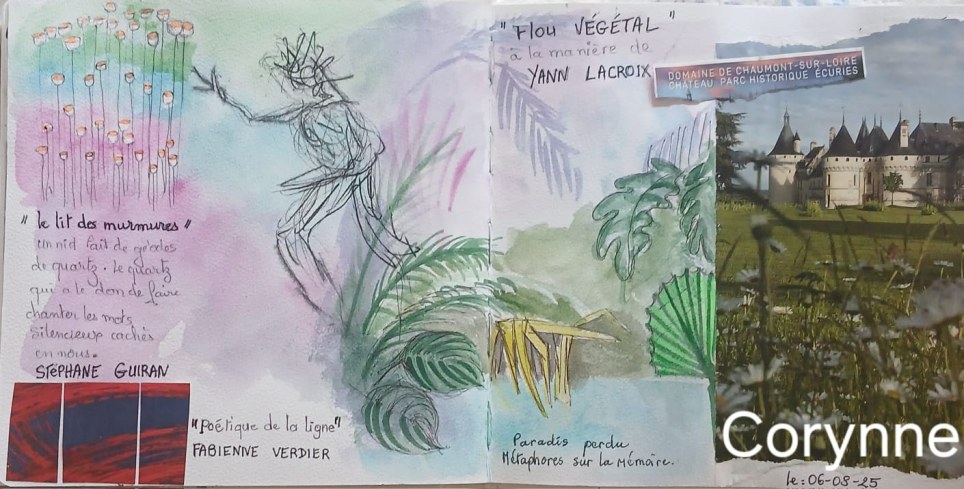 "le lit des murmures"
un nid fait de géodes
de quartz. Le quartz
qui a le don de faire
chanter les mots
silencieux cachés
en nous.
STÉPHANE GUIRAN
"Poétique de la ligne"
FABIENNE VERDIER
"Flou VÉGÉTAL"
à la manière de
YANN LACROIX
Paradis perdu
Métaphores sur la Mémoire.
DOMAINE DE CHAUMONT-SUR-LOIRE
CHÂTEAU PARC HISTORIQUE ÉCURIES
Corynne
le: 06-08-25